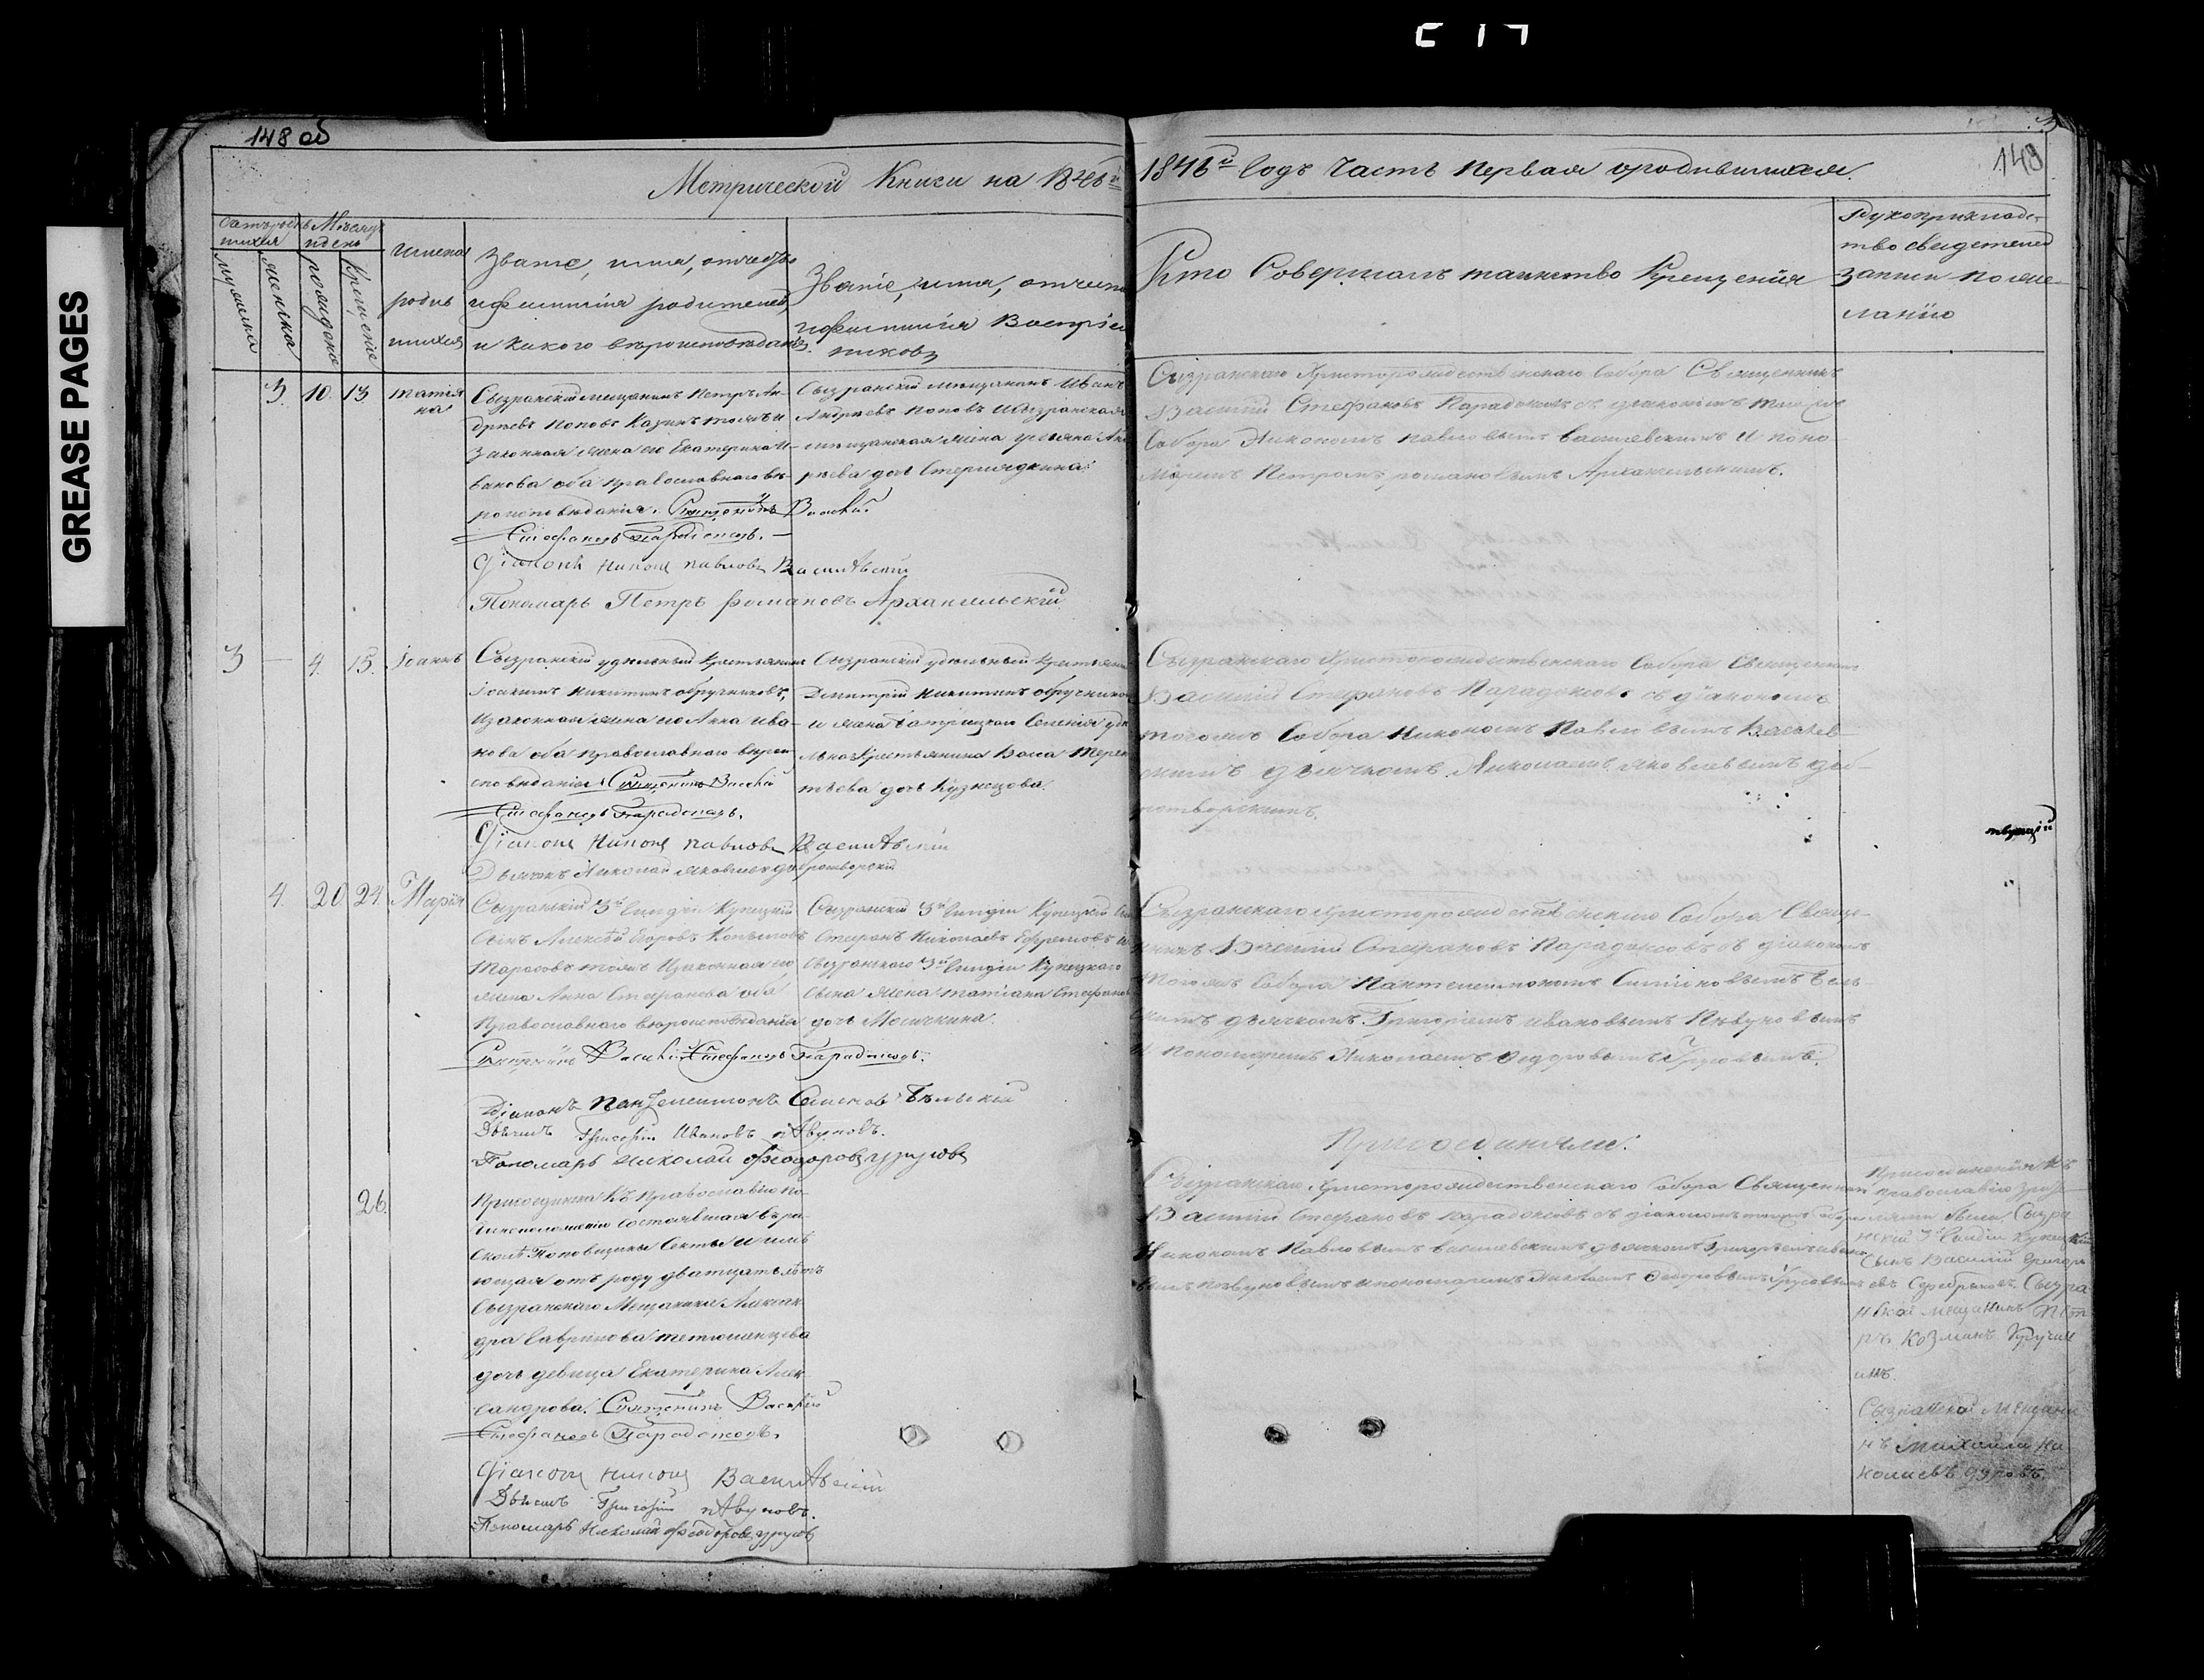 GREASE PAGES
148 об
149
Метрической Книги на 1846й
1846й годъ Часть Первая о родившихся.
мужеска
женска
рожденіе
крещеніе
Имена
родив
шихся
Званіе, имя, отчество
и фамилія родителей,
и какого вѣроисповѣданія.
Званіе, имя, отчест
и фамилія Воспріем
никовъ
Кто Совершалъ таинство Крещенія
Рукоприкладс-
тво свидетелей
записи по же-
ланію
3. 10. 13
Татія
на
Сызранскій мещанинъ Петръ Ан-
дреевъ Поповъ Казинъ тожъ и
законная жена его Екатерина И-
ванова оба православнаго вѣ-
роисповѣданія. Священникъ Василій
Стефановъ Парадоксовъ.
Діаконъ Никонъ Павловъ Василевскій
Пономарь Петръ Романовъ Архангельскій
Сызранскій мещанинъ Иванъ
Андреевъ Поповъ и Сызранская
мещанская жена Ульяна Анд
реева дочь Стерлядкина
Сызранскаго Христорождественскаго Собора Священникъ
Василій Стефановъ Парадоксовъ съ діакономъ тогожъ
Собора Никономъ Павловымъ Василевскимъ и поно
маремъ Петромъ Романовымъ Архангельскимъ.
3 — 4. 15. Іоаннъ
Сызранскій удѣльный крестьянинъ
Іоакимъ Никитинъ Обручниковъ,
и законная жена его Анна Ива-
нова оба православнаго вѣрои
сповѣданія. Священникъ Василій
Стефановъ Парадоксовъ.
Діаконъ Никонъ Павловъ Василевскій
Дьячекъ Николай Яковлевъ Добротворскій
Сызранскій удѣльный крестьянин
Димитрій Никитинъ Обручнико
и жена Батрацкаго Селенія удѣ
льнаго крестьянина Васса Терен
тьева дочь Кузнецова.
Сызранскаго Христорождественскаго Собора Священникъ
Василій Стефановъ Парадоксовъ съ діакономъ
тогожъ Собора Никономъ Павловымъ Василев
скимъ дьячкомъ Николаемъ Яковлевымъ Доб-
ротворскимъ.
4. 20 24 Марія
Сызранскій 3й гилдіи Купецкій
Сынъ Алексѣй Егоровъ Копыловъ
Тарасовъ тожъ и законная его
жена Анна Стефанова оба
Православнаго вѣроисповѣданія
Священникъ Василій Стефановъ Парадоксовъ.
Діаконъ Пантелеимонъ Симеоновъ Бѣльскій
Дьячекъ Григорій Ивановъ Пѣвуновъ.
Пономарь Николай Ѳеодоровъ Урусовъ
Сызранскій 3й гилдіи Купецкій Сын
Стефанъ Николаевъ Ефремовъ и
Сызранскаго 3й гилдіи Купецкаго
Сына жена Татіана Стефанов
дочь Мосичкина.
Сызранскаго Христорождественскаго Собора Свяще-
нникъ Василій Стефановъ Парадоксовъ съ діакономъ
тогожъ Собора Пантелеимономъ Симеоновымъ Бѣль-
скимъ дьячкомъ Григоріемъ Ивановымъ Пѣвуновымъ
и пономаремъ Николаемъ Ѳедоровымъ Урусовымъ.
Присоединены:
26.
Присоединена къ православію по
Чиноположенію состоявшая въ ра-
сколѣ Поповщины Секты и имѣ
ющая отъ роду дватцать лѣтъ
Сызранскаго Мещанина Алексан-
дра Гаврилова Тетюшинцева
дочь девица Екатерина Алек-
сандрова. Священникъ Василій
Стефановъ Парадоксовъ.
Діаконъ Никонъ Василевскій
Дьячекъ Григорій Пѣвуновъ.
Пономарь Николай Ѳеодоровъ Урусовъ
Сызранскаго Христорождественскаго Собора Священникъ
Василій Стефановъ Парадоксовъ съ діакономъ тогожъ Собора
Никономъ Павловымъ Василевскимъ дьячкомъ Григорьемъ Ивано
вымъ Пѣвуновымъ и пономаремъ Николаемъ Ѳедоровымъ Урусовымъ
Присоединенія къ
православію
были Сызра
нскій 3й Гилдіи Купецкій
Сынъ Василій Григорь
евъ Серебряковъ. Сызра
нской мещанинъ Пет
ръ Козминъ
Сызранской Мещани
нъ Михайла Ни
колаевъ